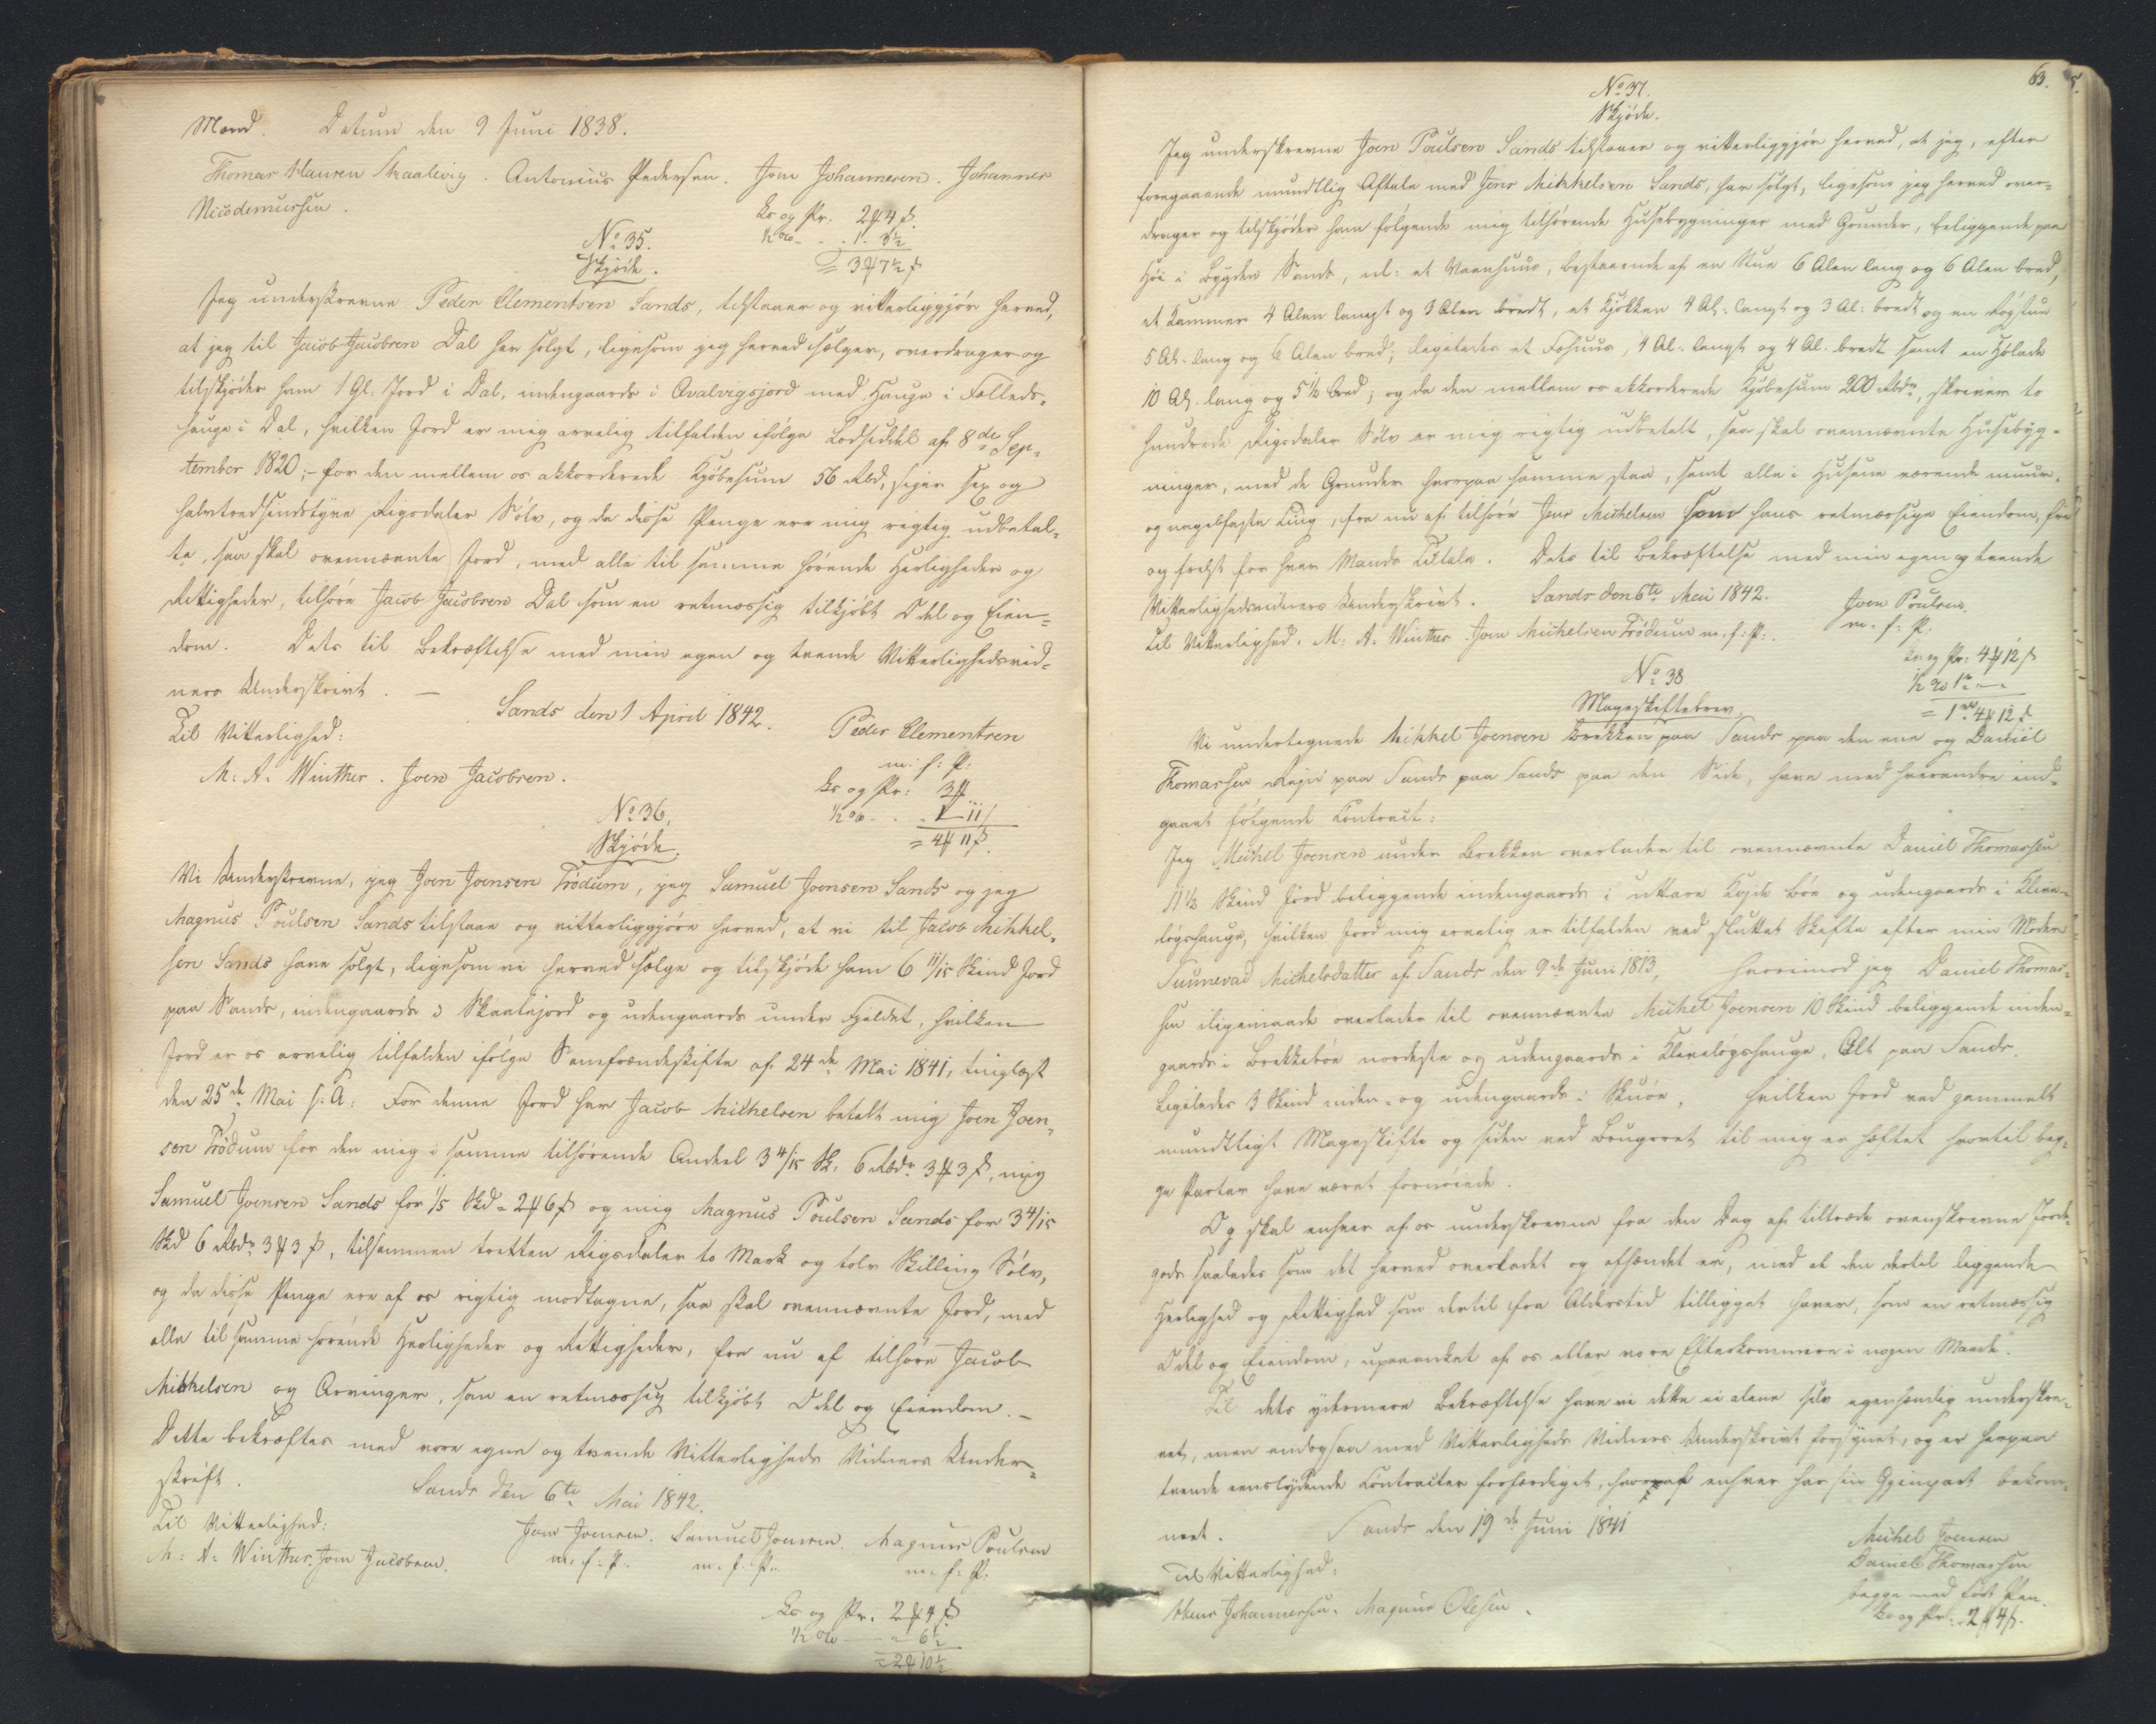 Mand. Datum den 9 Juni 1838.
Thomas Hansen Skaalevig. Antonius Pedersen. Joen Johannesen. Johannes
Nicodemussen.
Ks og Pr. 2 ₰ 4 ß
½ % - - 1 - 3½
= 3 ₰ 7½ ß
No 35.
Skjöde.
Jeg underskrevne Peder Clementsen Sands, tilstaaer og vitterliggjör herved,
at jeg til Jacob Jacobsen Dal har solgt, ligesom jeg herved sælger, overdrager og
tilskjöder ham 1 Gl. Jord i Dal, indengaards i Qvalvigsjord med Hauge i Fælleds-
hauge i Dal, hvilken Jord er mig arvelig tilfalden ifölge Lodseddel af 8de Sep-
tember 1820; - for den mellem os akkorderede Kjöbesum 56 Rbd, siger sex og
halvtredsindstyve Rigsdaler Sölv, og da disse Penge ere mig rigtig udbetal-
te, saa skal ovennævnte Jord, med alle til samme hörende Herligheder og
Rettigheder, tilhöre Jacob Jacobsen Dal som en retmæssig tilkjöbt Odel og Eien-
dom. Dets til Bekræftelse med min egen og tvende Vitterlighedsvid-
ners Underskrivt. -
Sands den 1 April 1842.
Til Vitterlighed:
Peder Clementsen
m: f: P:
M: A: Winther. Joen Jacobsen.
Ks og Pr: 3 ₰
½ % - - 1 - 11
= 4 ₰ 11 ß.
No 36.
Skjöde.
Vi Underskrevne, jeg Joen Joensen Trödum, jeg Samuel Joensen Sands og jeg
Magnus Poulsen Sands tilstaae og vitterliggjöre herved, at vi til Jacob Mikkel-
sen Sands have solgt, ligesom vi herved sælge og tilskjöde ham 6 11/15 Skind Jord
paa Sands, indengaards i Skaalejord og udengaards under Fjeldet, hvilken
Jord er os arvelig tilfalden ifölge Samfrændeskifte af 24de Mai 1841, tinglæst
den 25de Mai s: A: For denne Jord har Jacob Michelsen betalt mig Joen Joen-
sen Trödum for den mig i samme tilhörende Andeel 3 4/15 Sk: 6 Rbdr 3 ₰ 3 ß, mig
Samuel Joensen Sands for 1/5 Skd = 2 ₰ 6 ß og mig Magnus Poulsen Sands for 3 4/15
Skd 6 Rbdr 3 ₰ 3 ß, tilsammen tretten Rigsdaler to Mark og tolv Skilling Sölv,
og da disse Penge ere af os rigtig modtagne, saa skal ovennævnte Jord, med
alle til samme hörende Herligheder og Rettigheder, fra nu af tilhöre Jacob
Mikkelsen og Arvinger, som en retmæssig tilkjöbt Odel og Eiendom. -
Dette bekræftes med vore egne og tvende Vitterligheds Vidners Under-
skrift.
Sands den 6te Mai 1842.
Til Vitterlighed:
Joen Joensen. Samuel Joensen. Magnus Poulsen
m: f: P. m: f: P. m: f: P.
M: A: Winther. Joen Jacobsen.
Ks og Pr: 2 ₰ 4 ß
½ % - - 6½
= 2 ₰ 10½
63.
No 37.
Skjöde.
Jeg underskrevne Joen Poulsen Sands tilstaaer og vitterliggjör herved, at jeg, efter
foregaaende mundtlig Aftale med Jens Mikkelsen Sands, har solgt, ligesom jeg herved over-
drager og tilskjöder ham fölgende mig tilhörende Husebygninger med Grunder, beliggende paa
Höi i Bygden Sands, nl: et Vaanhuus, bestaaende af en Stue 6 Alen lang og 6 Alen bred,
et Kammer 4 Alen langt og 3 Alen bredt, et Kjökken 4 Al: langt og 3 Al: bredt og en Rögstue
5 Al: lang og 6 Alen bred; ligeledes et Fæhuus, 4 Al: langt og 4 Al. bredt samt en Hölade
10 Al. lang og 5½ bred; og da den mellem os akkorderede Kjöbesum 200 Rbdr, skriver to
hundrede Rigsdaler Sölv er mig rigtig udbetalt, saa skal ovennævnte Husebyg-
ninger, med de Grunder hvorpaa samme staa, samt alle i Husene værende muur-
og nagelfaste Ting, fra nu af tilhöre Jens Michelsen som hans retmæssige Eiendom, frit
og frelst for hver Mands Tiltale. Dets til Bekræftelse med min egen og tvende
Vitterlighedsvidners Underskrivt. Sands den 6te Mai 1842.
Joen Poulsen.
m: f: P:
Til Vitterlighed. M: A: Winther. Joen Michelsen Trödum m. f: P:
Ks og Pr: 4 ₰ 12 ß
½ % 1 r - -
= 1 rbd 4 ₰ 12 ß
No 38
Mageskiftebrev.
Vi undertegnede Mikkel Joensen Brekken paa Sands paa den ene og Daniel
Thomassen Reje paa Sands paa Sands paa den Side, have med hverandre ind-
gaaet fölgende Contract:
Jeg Michel Joensen under Brekken overlader til ovennævnte Daniel Thomassen
11½ Skind Jord beliggende indengaards i uttare Reje Böe og udengaards i Klive-
lögshauge, hvilken Jord mig arvelig er tilfalden ved sluttet Skifte efter min Moder
Sunnevad Michelsdatter af Sands den 9de Juni 1813, hvorimod jeg Daniel Thomas-
sen iligemaade overlader til ovennævnte Michel Joensen 10 Skind beliggende inden-
gaards i Brekkeböe nordeste og udengaards i Klivelögshauge, Alt paa Sands.
Ligeledes 3 Skind inden- og udengaards i Skuöe, hvilken Jord ved gammelt
mundtligt Mageskifte og siden ved Brugsret til mig er hæftet hvortil beg-
ge Parter have været fornöiede.
Og skal enhver af os underskrevne fra den Dag af tiltræde ovenskrevne Jorde-
gods saaledes som det herved overladet og afhændet er, med al den dertil liggende
Herlighed og Rettighed som dertil fra Alderstid tilligget haver, som en retmæssig
Odel og Eiendom, upaaanket af os eller vore Efterkommere i nogen Maade.
Til dets ydermere Bekræftelse have vi dette ei alene selv egenhændig underskre-
vet, men endogsaa med Vitterligheds Vidners Underskrivt forsynet, og er herpaa
tvende eenslydende Contracter forfærdiget, hvoraf enhver har sin Gjenpart bekom-
met. Sands den 19de Juni 1841
Michel Joensen
Daniel Thomassen
begge med ført Pen.
Til Vitterlighed:
Hans Johannessen. Magnus Olesen.
Ks og Pr: 2 ₰ 4 ß.